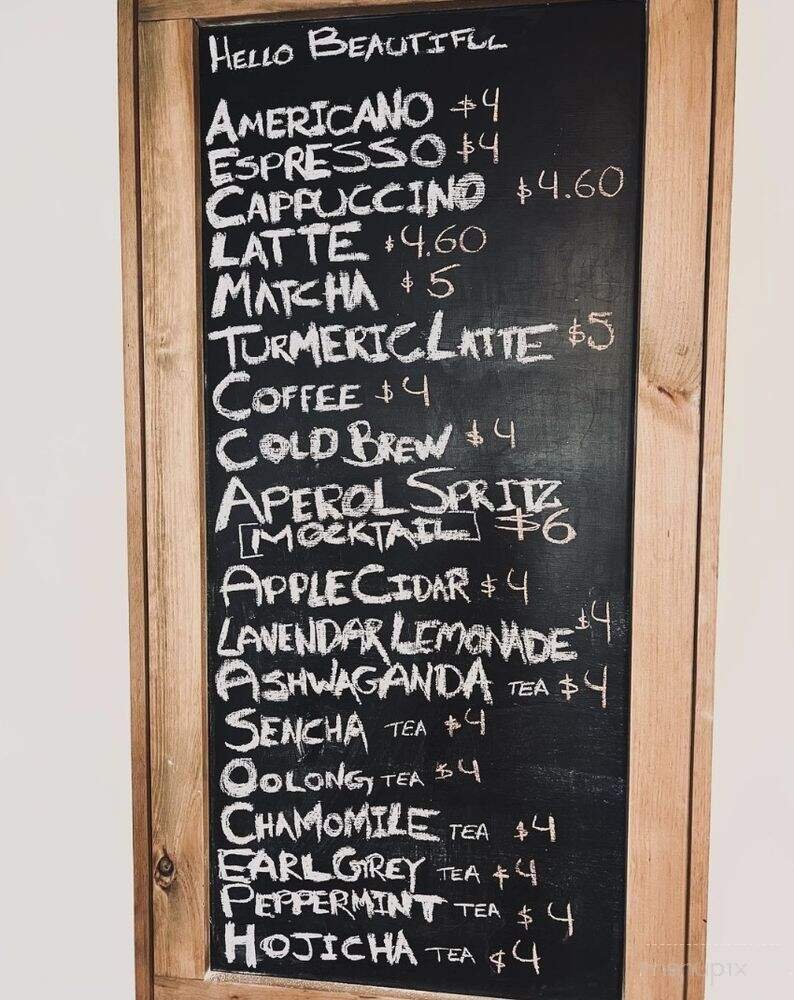 HELLO BEAUTIFUL
AMERICANO $4
ESPRESSO $4
CAPPUCCINO $4.60
LATTE $4.60
MATCHA $5
TURMERIC LATTE $5
COFFEE $4
COLD BREW $4
APEROL SPRITZ
[MOCKTAIL] $6
APPLE CIDAR $4
LAVENDAR LEMONADE $4
ASHWAGANDA TEA $4
SENCHA TEA $4
OOLONG TEA $4
CHAMOMILE TEA $4
EARL GREY TEA $4
PEPPERMINT TEA $4
HOJICHA TEA $4
menupix